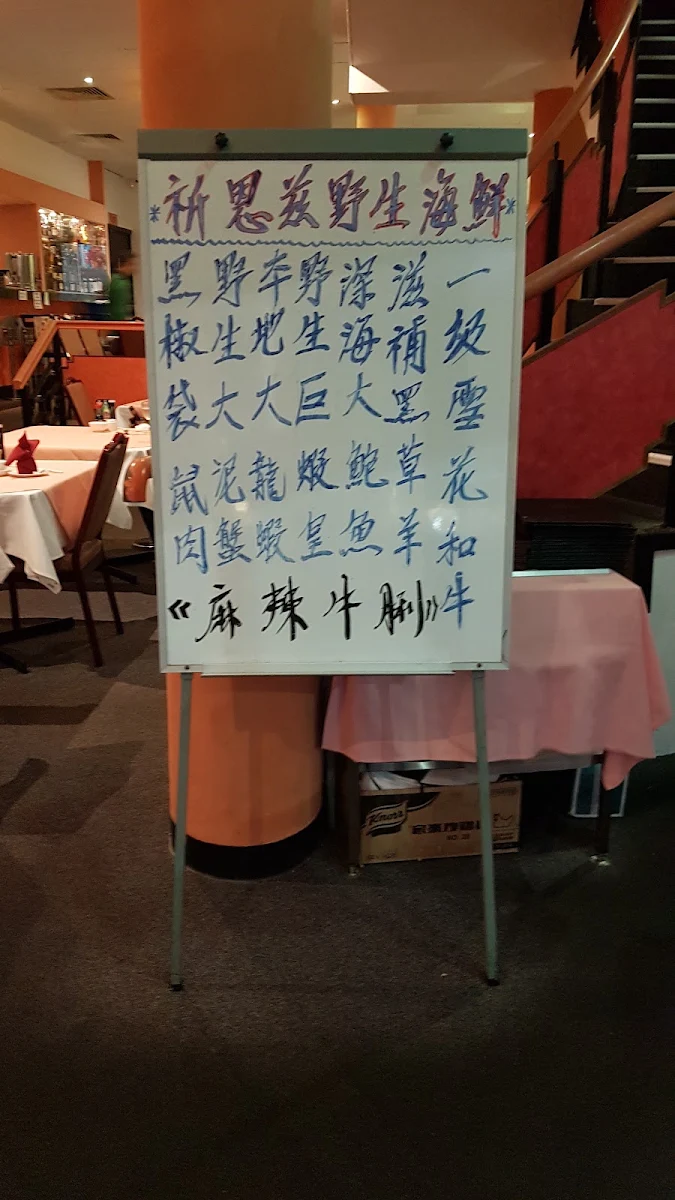 *新思茲野生海鮮*
一級雪花和牛
滋補黑草羊
深海大鮑魚
野生巨蝦皇
本地大龍蝦
野生大泥蟹
黑椒袋鼠肉
《麻辣牛脷》
Knorr